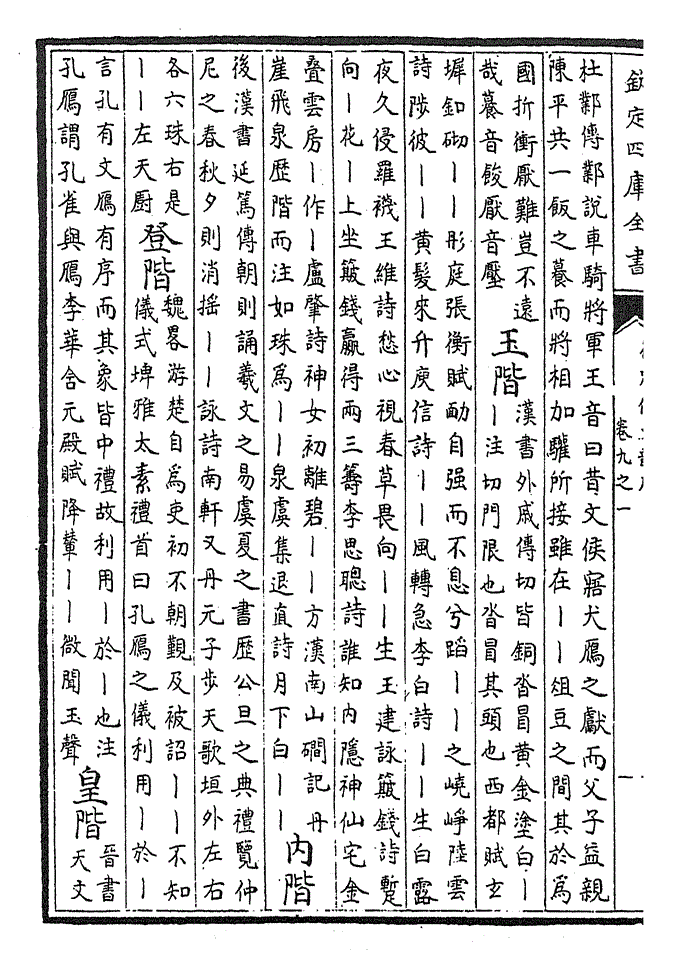 欽定四庫全書
卷九之一
一
杜鄴傳鄴說車騎將軍王音曰昔文侯寤犬鴈之獻而父子益親
陳平共一飯之籑而將相加驩所接雖在丨丨俎豆之間其於為
國折衝厭難豈不遠
哉籑音餕厭音壓
玉階
漢書外戚傳切皆銅沓冒黃金塗白丨
丨注切門限也沓冒其頭也西都賦玄
墀釦砌丨丨彤庭張衡賦勔自强而不息兮蹈丨丨之嶢崢陸雲
詩陟彼丨丨黃髮來升庾信詩丨丨風轉急李白詩丨丨生白露
夜久侵羅襪王維詩愁心視春草畏向丨丨生王建詠簸錢詩蹔
向丨花丨上坐簸錢贏得兩三籌李思聰詩誰知內隱神仙宅金
疊雲房丨作丨盧肇詩神女初離碧丨丨方漢南山礀記丹
崖飛泉歷階而注如珠為丨丨泉虞集退直詩月下白丨丨
內階
後漢書延篤傳朝則誦羲文之易虞夏之書歷公旦之典禮覽仲
尼之春秋夕則消摇丨丨詠詩南軒又丹元子步天歌垣外左右
各六珠右是
丨丨左天厨
登階
魏畧游楚自為吏初不朝覲及被詔丨丨不知
儀式埤雅太素禮首曰孔鴈之儀利用丨於丨
言孔有文鴈有序而其象皆中禮故利用丨於丨也注
孔鴈謂孔雀與鴈李華含元殿賦降輦丨丨微聞玉聲
皇階
晉書
天文